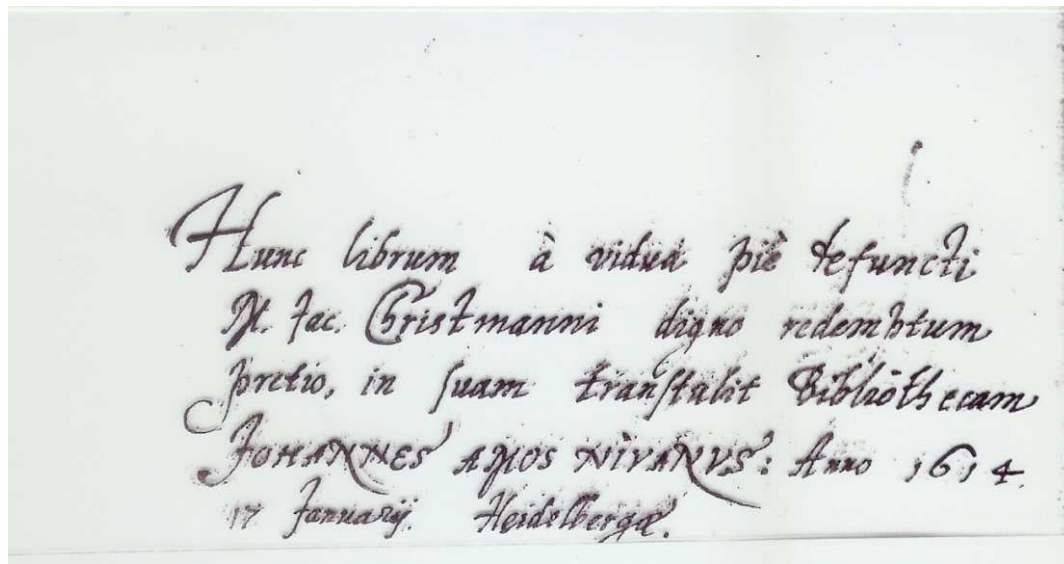 Hunc librum à viduâ piè defuncti
M. Jac. Christmanni digno redemptum
pretio, in suam transtulit Bibliothecam
JOHANNES AMOS NIVANVS: Anno 1614.
17 Januarij. Heidelbergæ.